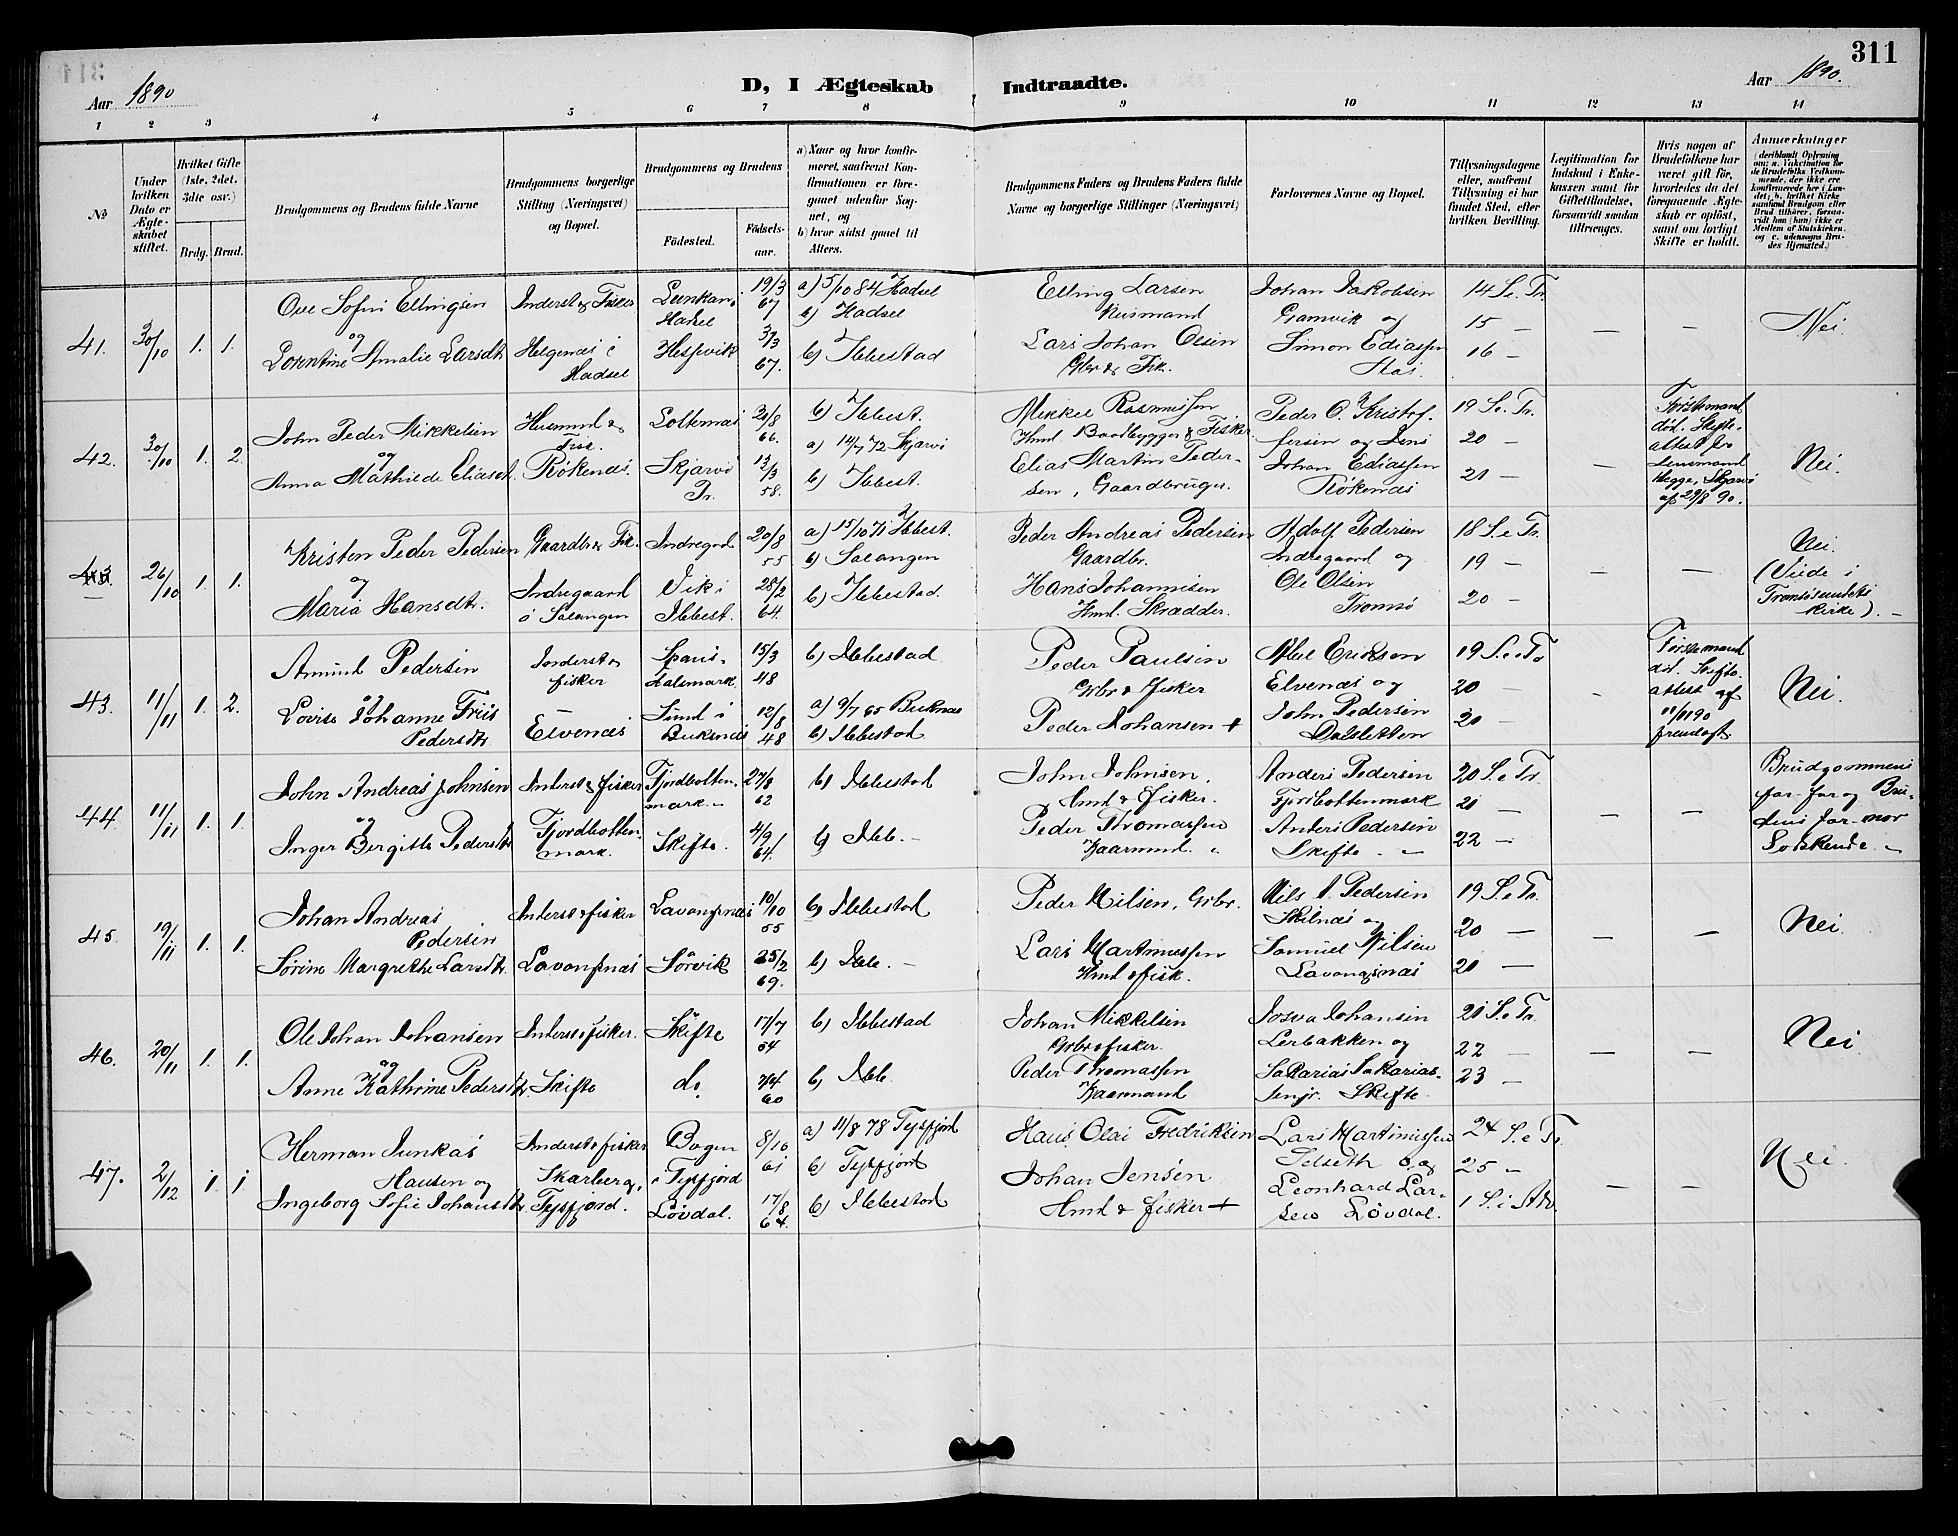 311
Aar 1890
D, I Ægteskab Indtraadte.
Aar 1890.
1 2 3 4 5 6 7 8 9 10 11 12 13 14
No
Under hvilken Dato er Ægteskabet stiftet.
Hvilket Gifte (1ste, 2det, 3die osv.)
Brdg. Brud.
Brudgommens og Brudens fulde Navne
Brudgommens borgerlige Stilling (Næringsvei) og Bopæl.
Brudgommens og Brudens
Födested.
Födsels-aar.
a) Naar og hvor konfirmeret, saafremt Konfirmationen er foregaaet udenfor Sognet, og
b) hvor sidst gaaet til Alters.
Brudgommens Faders og Brudens Faders fulde Navne og borgerlige Stillinger (Næringsvei)
Forlovernes Navne og Bopæl.
Tillysningsdagene eller, saafremt Tillysning ei har fundet Sted, efter hvilken Bevilling.
Legitimation for Indskud i Enkekassen samt for Giftetilladelse, forsaavidt saadan tiltrænges.
Hvis nogen af Brudefolkene har været gift för, hvorledes da det foregaaende Ægteskab er oplöst, samt om lovligt Skifte er holdt.
Anmærkninger
41. 30/10 1. 1.
Ove Sofus Ellingsen
og
Lorentine Amalie Larsdtr
Inderst & Fisker
Helgenæs i
Hadsel
Hadsel
Hessvik
19/3
67
3/3
67.
a) 5/10 84 Hadsel
b) Hadsel
b) Ibbestad
Elling Larsen
Husmand
Lars Johan Olsen
Gbr & Fisk.
Johan Jakobsen
Gamvik og
Simon Ediassen
14 S. e. Tr.
15 —
16 —
— —
Nei
42. 30/10 1. 2.
John Peder Mikkelsen
og
Anna Mathilde Eliasdt.
Husmnd &
Fisk.
Rökenæs.
Loltemæs
Skjærvö
Pr.
66.
58.
b) Ibbest.
a) 14/7 72 Skjærvö
b) Ibbest.
Mikkel Rasmussen
Hmd Baadbygger & Fisker
Elias Martin Peder-
sen, Gaardbruger.
Peder O. Kristof-
fersen og Jens
Johan Ediassen
Rökenæs
19 S. e. Tr.
20 —
21 —
—
Förstemand
död. Skifte-
attest fra
Lensmand
Hegge, Skjærvö
af 29/8 90.
Nei.
43. 26/10 1. 1.
Kristen Peder Pedersen
og
Maria Hansdtr.
Gaardbr & Fisk.
Indregaard
i Salangen
Indregrd
Vik i
Ibbest.
20/8
55
28/2
64.
a) 15/10 71 Ibbest.
b) Salangen
b) Ibbestad.
Peder Andreas Pedersen
Gaardbr.
Hans Johannesen
Hmd. Skrædder.
Adolf Pedersen
Indregaard og
Ole Olsen
Tromsö
18 S. e Tr.
19 —
20 —
— —
Nei.
(Viede i
Tromsösundets
kirke). —
43. 11/11 1. 2.
Amund Pedersen
og
Lovise Johanne Friis
Pedersdtr
Inderst &
fisker
—
Elvenæs
Spans-
halsmark.
Sund i
Buksnæs
15/3
48
12/8
48
b) Ibbestad
a) 9/7 65 Buknæs
b) Ibbestad
Peder Paulsen
Gbr & fisker
Peder Johansen +
Abel Eriksen
Elvenæs og
John Pedersen
Dalsletten
19 S. e. Tr
20 —
20 —
Förstemand
död. Skifte-
attest af
11/11 90
fremlagt
Nei.
44. 11/11 1. 1.
John Andreas Johnsen
og
Inger Bergitte Pedersdtr
Inderst & fisker
Fjordbotten-
mark.
Fjordbotten-
mark. —
Skifte.
27/8
62
4/9
64.
b) Ibbestad
b) Ibb. —
John Johnsen.
Hmd & fisker.
Peder Thomassen
Kaarmnd.
Anders Pedersen
Fjordbottenmark
Anders Pedersen
Skifte. —
20 S. e Tr.
21 —
22 —
— —
Brudgommens
far-far og Bru-
dens far-mor
Södskende. —
45. 19/11 1. 1.
Johan Andreas
Pedersen
Sörine Margrethe Larsdtr.
Inderst & fisker
Lavangsnæs
Lavangsnæs
Sörvik
10/10
55
25/2
69.
b) Ibbestad
b) Ibb. —
Peder Nilsen, Gbr.
Lars Martinussen
Hmd & fisk.
Nils A. Pedersen
Skilnæs og
Samuel Nilsen
Lavangsnæs
19 S. e Tr.
20 —
21 —
— —
Nei.
46. 20/11 1. 1.
Ole Johan Johansen
og
Anne Kathrine Pedersdtr.
Inderst & fisker.
Skifte
Skifte
do
17/7
64
60
b) Ibbestad
b) Ibb.
Johan Mikkelsen
Gbr & fisker.
Peder Thomassen
Kaarmand
Josva Johansen
Lerbakken og
Sakarias Sakarias-
senjr. Skifte.
21 S. e Tr.
22 —
23 —
— —
Nei
47. 2/12 1. 1
Herman Junkas
Hansen og
Ingeborg Sofie Johansdtr.
Inderst & fisker
Skarberg,
Tysfjord.
Bogen
i Tysfjord
Lövdal.
8/10
61
17/8
64.
a) 11/8 78 Tysfjord
b) Tysfjord
b) Ibbestad
Hans Olai Fredriksen
Johan Jensen
Hmd & fisker +
Lars Martinussen
Selseth o. og
Leonhard Lar-
sen Lövdal.
24 S. e Tr.
25 —
1 S. i Adv.
— —
Nei.